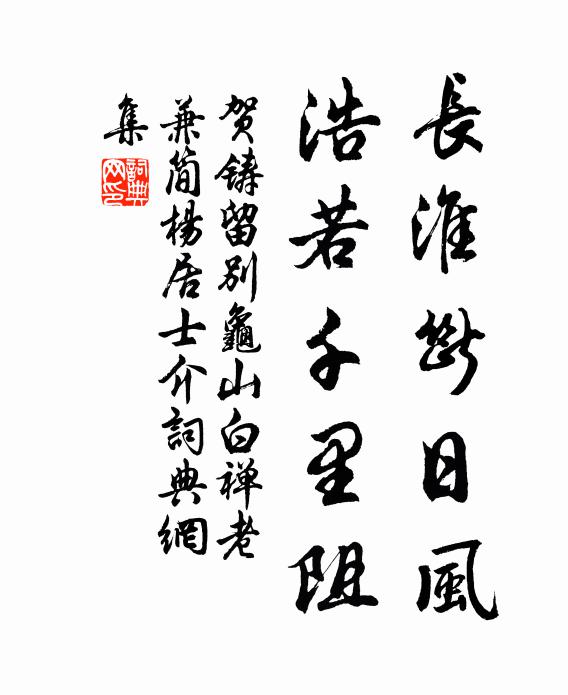 長淮斷日風
浩若千里阻
賀鑄留別龜山白禅老
兼简楊居士介詞典網
集
詞典
网印